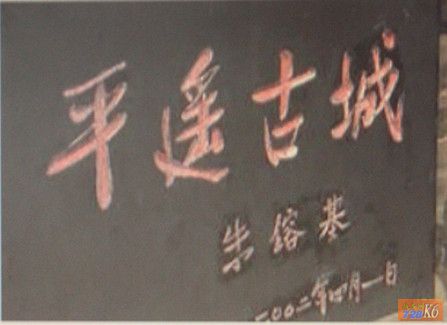 平遥古城
朱镕基
二〇〇二年四月一日
K6